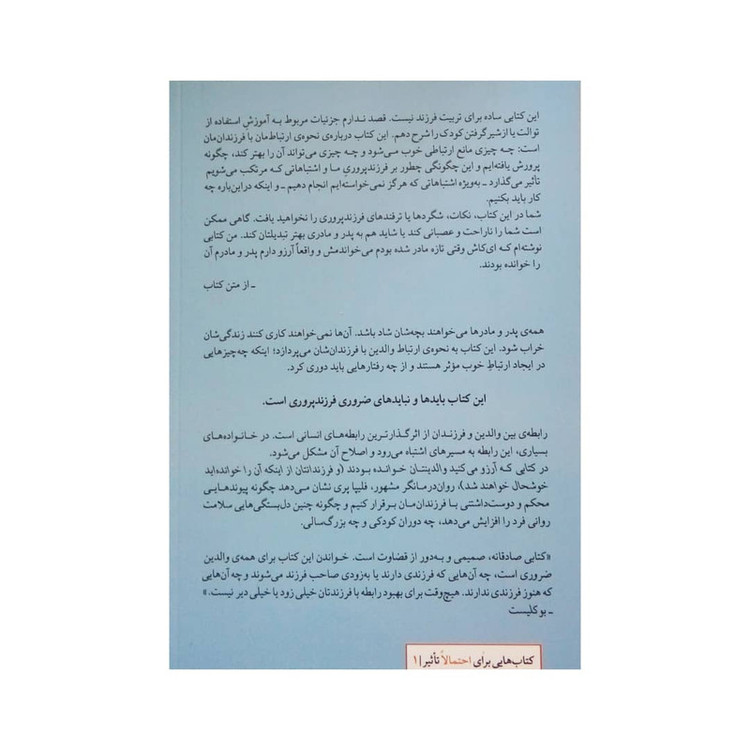 این کتابی ساده برای تربیت فرزند نیست. قصد ندارم جزئیات مربوط به آموزش استفاده از
توالت یا از شیر گرفتن کودک را شرح دهم. این کتاب درباره‌ی نحوه‌ی ارتباط‌مان با فرزندان‌مان
است: چه چیزی مانع ارتباطی خوب می‌شود و چه چیزی می‌تواند آن را بهتر کند، چگونه
پرورش یافته‌ایم و این چگونگی چطور بر فرزندپروریِ ما و اشتباهاتی که مرتکب می‌شویم
تأثیر می‌گذارد ـ به‌ویژه اشتباهاتی که هرگز نمی‌خواسته‌ایم انجام دهیم ـ و اینکه دراین‌باره چه
کار باید بکنیم.
شما در این کتاب، نکات، شگردها یا ترفندهای فرزندپروری را نخواهید یافت. گاهی ممکن
است شما را ناراحت و عصبانی کند یا شاید هم به پدر و مادری بهتر تبدیلتان کند. من کتابی
نوشته‌ام که ای‌کاش وقتی تازه مادر شده بودم می‌خواندمش و واقعاً آرزو دارم پدر و مادرم آن
را خوانده بودند.
ـ از متن کتاب
همه‌ی پدر و مادرها می‌خواهند بچه‌شان شاد باشد. آن‌ها نمی‌خواهند کاری کنند زندگی‌شان
خراب شود. این کتاب به نحوه‌ی ارتباط والدین با فرزندان‌شان می‌پردازد؛ اینکه چه‌چیزهایی
در ایجاد ارتباطِ خوب مؤثر هستند و از چه رفتارهایی باید دوری کرد.
این کتاب بایدها و نبایدهای ضروری فرزندپروری است.
رابطه‌ی بین والدین و فرزندان از اثرگذارترین رابطه‌های انسانی است. در خانواده‌های
بسیاری، این رابطه به مسیرهای اشتباه می‌رود و اصلاح آن مشکل می‌شود.
در کتابی که آرزو می‌کنید والدینتان خوانده بودند (و فرزندانتان از اینکه آن را خوانده‌اید
خوشحال خواهند شد)، روان‌درمانگر مشهور، فلیپا پری نشان می‌دهد چگونه پیوندهایی
محکم و دوست‌داشتنی با فرزندان‌مان برقرار کنیم و چگونه چنین دل‌بستگی‌هایی سلامت
روانی فرد را افزایش می‌دهد، چه دوران کودکی و چه بزرگ‌سالی.
«کتابی صادقانه، صمیمی و به‌دور از قضاوت است. خواندن این کتاب برای همه‌ی والدین
ضروری است، چه آن‌هایی که فرزندی دارند یا به‌زودی صاحب فرزند می‌شوند و چه آن‌هایی
که هنوز فرزندی ندارند. هیچ‌وقت برای بهبود رابطه با فرزندتان خیلی زود یا خیلی دیر نیست.»
ـ بوکلیست
کتاب‌هایی برای احتمالاً تأثیر | ۱